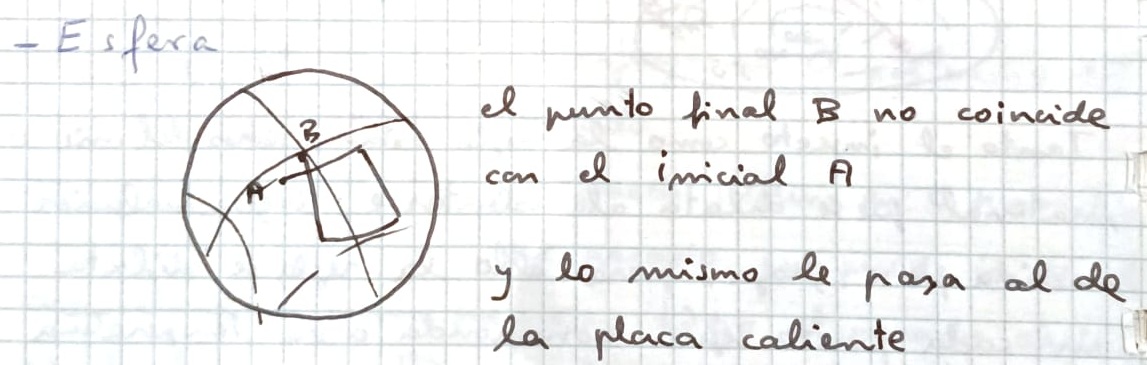 - Esfera
B
A
el punto final B no coincide
con el inicial A
y lo mismo le pasa al de
la placa caliente